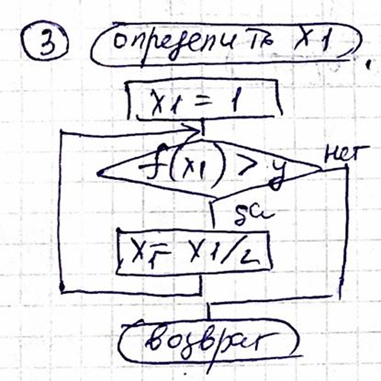 3 определить x1
x1 = 1
f(x1) > y нет
да
x1 = x1/2
возврат